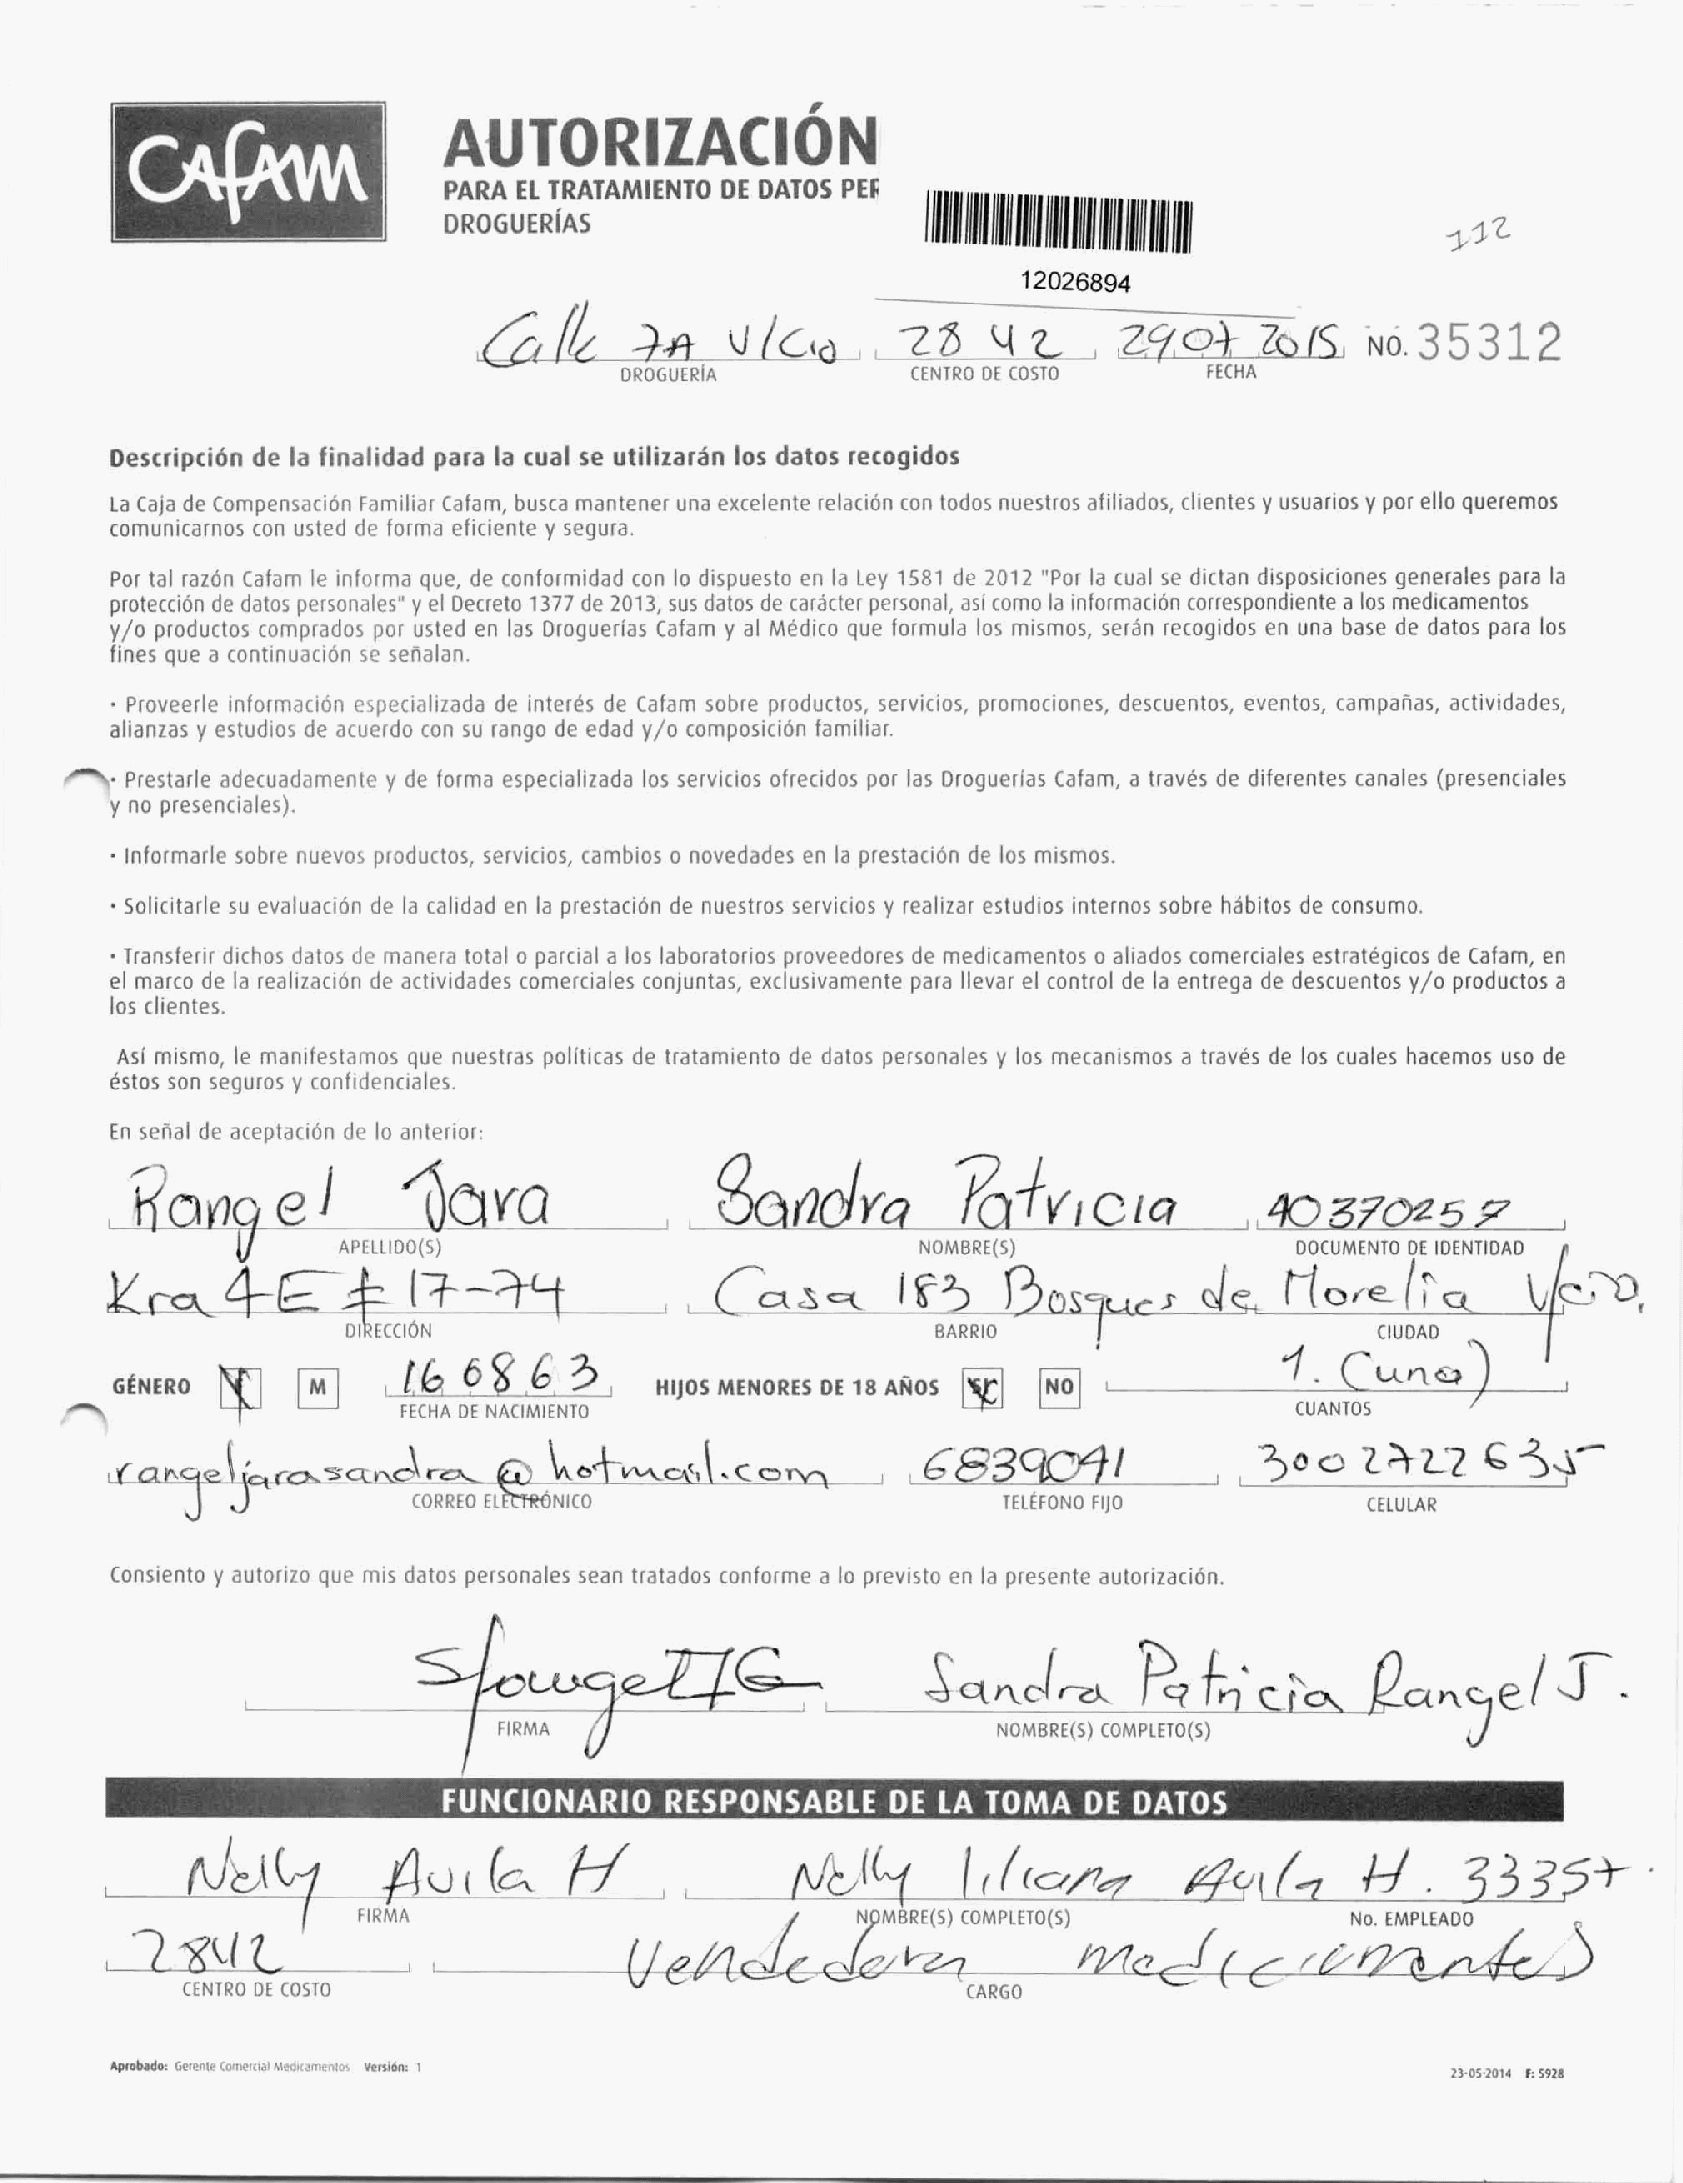 CAfAM
AUTORIZACIÓN
PARA EL TRATAMIENTO DE DATOS PER
DROGUERÍAS
12026894
112
Calle 7A V/Cio 2842 29 07 2015 NO. 35312
DROGUERÍA CENTRO DE COSTO FECHA
Descripción de la finalidad para la cual se utilizarán los datos recogidos
La Caja de Compensación Familiar Cafam, busca mantener una excelente relación con todos nuestros afiliados, clientes y usuarios y por ello queremos
comunicarnos con usted de forma eficiente y segura.
Por tal razón Cafam le informa que, de conformidad con lo dispuesto en la Ley 1581 de 2012 "Por la cual se dictan disposiciones generales para la
protección de datos personales" y el Decreto 1377 de 2013, sus datos de carácter personal, así como la información correspondiente a los medicamentos
y/o productos comprados por usted en las Droguerías Cafam y al Médico que formula los mismos, serán recogidos en una base de datos para los
fines que a continuación se señalan.
· Proveerle información especializada de interés de Cafam sobre productos, servicios, promociones, descuentos, eventos, campañas, actividades,
alianzas y estudios de acuerdo con su rango de edad y/o composición familiar.
· Prestarle adecuadamente y de forma especializada los servicios ofrecidos por las Droguerías Cafam, a través de diferentes canales (presenciales
y no presenciales).
· Informarle sobre nuevos productos, servicios, cambios o novedades en la prestación de los mismos.
· Solicitarle su evaluación de la calidad en la prestación de nuestros servicios y realizar estudios internos sobre hábitos de consumo.
· Transferir dichos datos de manera total o parcial a los laboratorios proveedores de medicamentos o aliados comerciales estratégicos de Cafam, en
el marco de la realización de actividades comerciales conjuntas, exclusivamente para llevar el control de la entrega de descuentos y/o productos a
los clientes.
Así mismo, le manifestamos que nuestras políticas de tratamiento de datos personales y los mecanismos a través de los cuales hacemos uso de
éstos son seguros y confidenciales.
En señal de aceptación de lo anterior:
Rangel Jara Sandra Patricia 40370257
APELLIDO(S) NOMBRE(S) DOCUMENTO DE IDENTIDAD
Kra 4E # 17-74 Casa 183 Bosques de Morelia V/cio.
DIRECCIÓN BARRIO CIUDAD
GÉNERO F M 16 08 63 HIJOS MENORES DE 18 AÑOS SI NO 1. (una)
FECHA DE NACIMIENTO CUANTOS
rangeljarasandra@hotmail.com 6839041 3002722635
CORREO ELECTRÓNICO TELÉFONO FIJO CELULAR
Consiento y autorizo que mis datos personales sean tratados conforme a lo previsto en la presente autorización.
Sandra Patricia Rangel J.
FIRMA NOMBRE(S) COMPLETO(S)
FUNCIONARIO RESPONSABLE DE LA TOMA DE DATOS
Nelly Avila H Nelly liliana Avila H. 33357.
FIRMA NOMBRE(S) COMPLETO(S) No. EMPLEADO
2842 Vendedora medicamentos
CENTRO DE COSTO CARGO
Aprobado: Gerente Comercial Medicamentos Versión: 1
23-05-2014 F: 5928